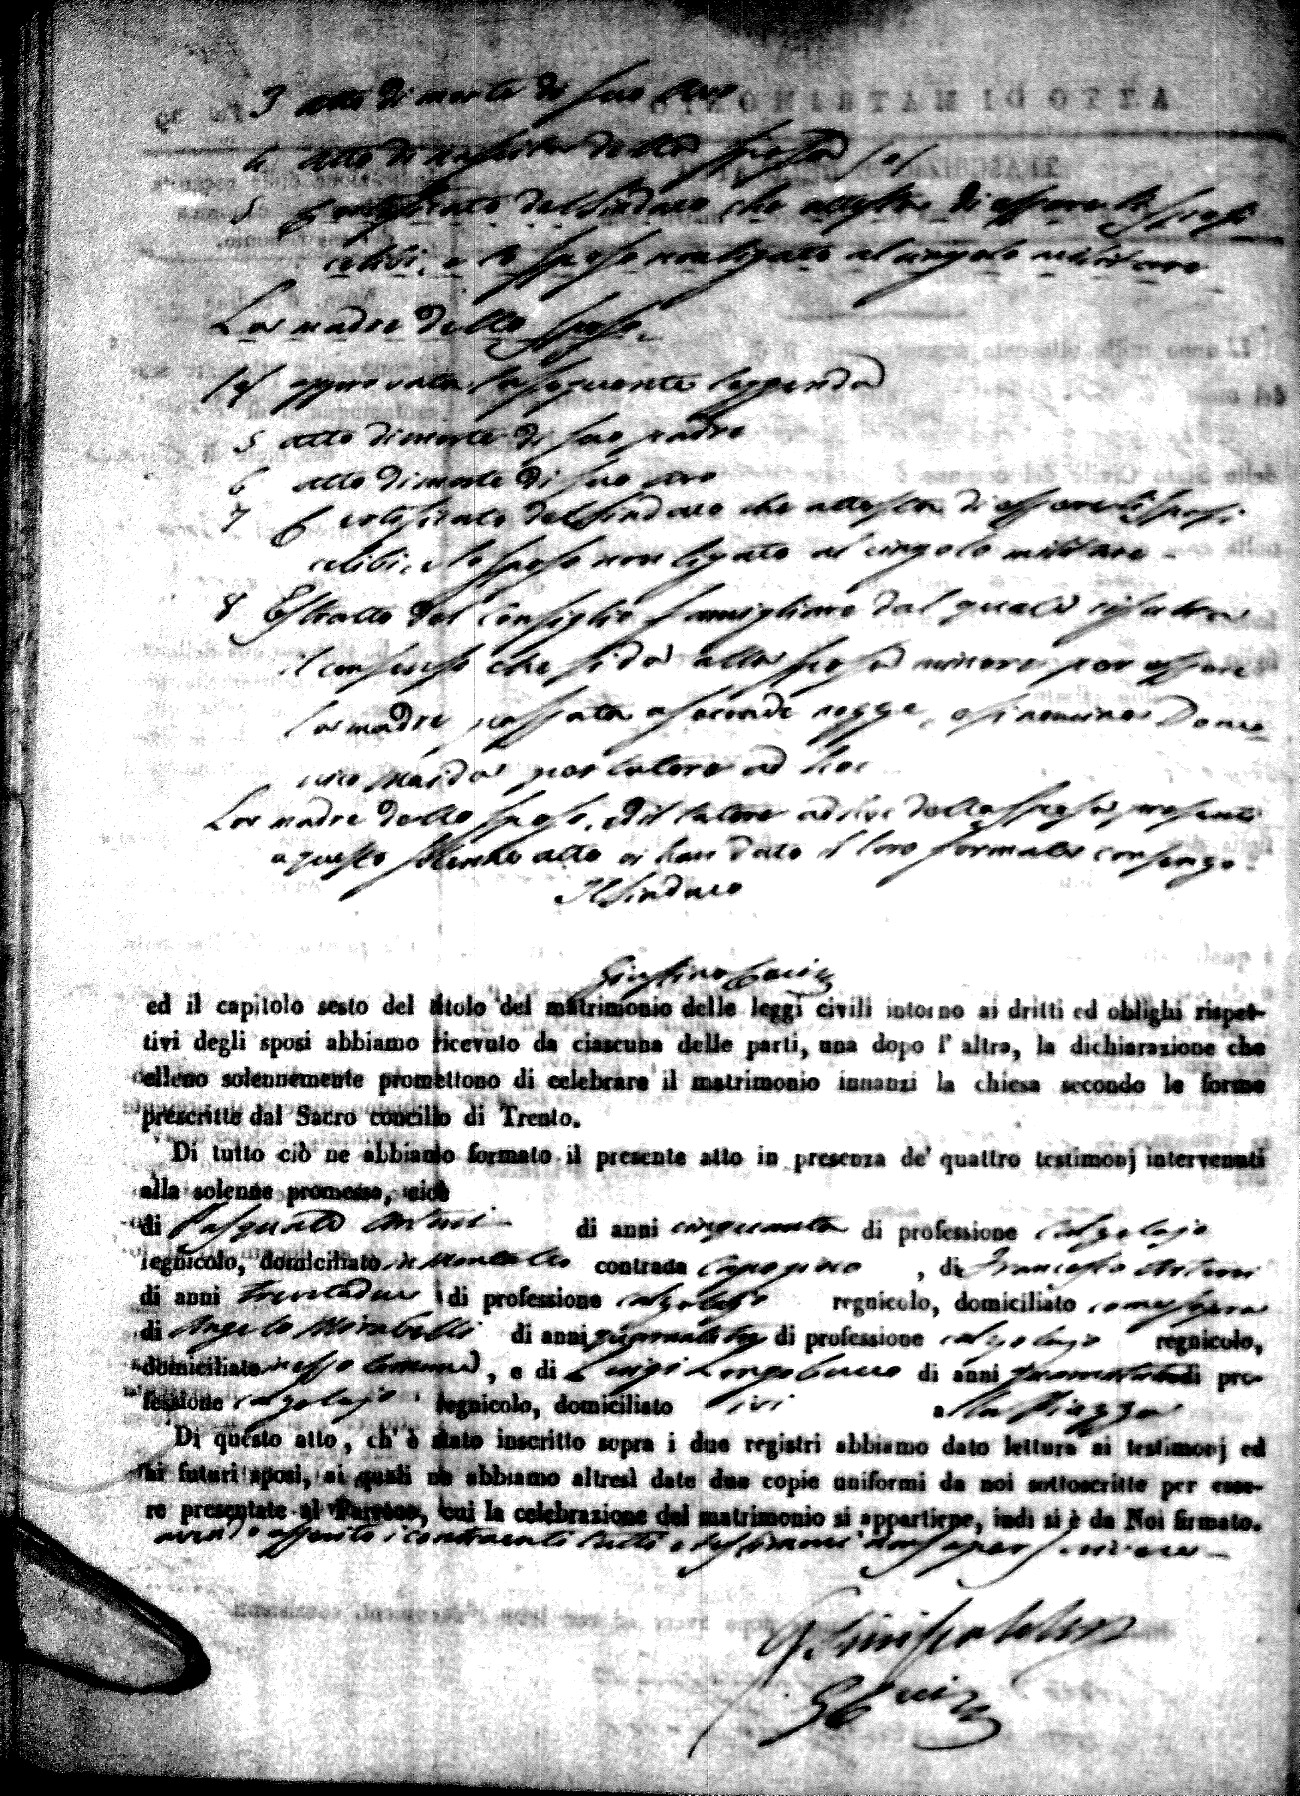 3 atto di morte di suo avo
4 atto di nascita della sposa (a)
5 Certificato del Sindaco che attesta di essere li sposi
celibi, e lo sposo non ligato al cingolo militare
La madre dello sposo
(a) approvata la seguente leggenda
5 atto di morte di suo padre
6 atto di morte di suo avo
7 Certificato del Sindaco che attesta di essere li sposi
celibi, e lo sposo non ligato al cingolo militare -
8 Estratto del Consiglio famigliare dal quale risulta
il consenso che si dà alla sposa minore per essere
la madre passata a seconde nozze, e si nomina Dome-
nico per tutore ad hoc
La madre dello sposo, ed il tutore ad hoc della sposa, presenti
a questo solenne atto ci han dato il loro formale consenso.
Il Sindaco
Giustino
ed il capitolo sesto del titolo del matrimonio delle leggi civili intorno ai dritti ed oblighi rispet-
tivi degli sposi abbiamo ricevuto da ciascuna delle parti, una dopo l' altra, la dichiarazione che
elleno solennemente promettono di celebrare il matrimonio innanzi la chiesa secondo le forme
prescritte dal Sacro concilio di Trento.
Di tutto ciò ne abbiamo formato il presente atto in presenza de' quattro testimonj intervenuti
alla solenne promessa, cioè
di Pasquale Arturi di anni cinquanta di professione calzolajo
regnicolo, domiciliato in contrada Capopino , di Francesco Arturi
di anni trentadue di professione calzolajo regnicolo, domiciliato come sopra
di Angelo Mirabelli di anni di professione calzolajo regnicolo,
domiciliato in esso Comune, e di Luigi Longobucco di anni di pro-
fessione calzolajo regnicolo, domiciliato ivi alla Piazza
Di questo atto, ch' è stato inscritto sopra i due registri abbiamo dato lettura ai testimonj ed
ai futuri sposi, ai quali ne abbiamo altresì date due copie uniformi da noi sottoscritte per esse-
re presentate al Parroco, cui la celebrazione del matrimonio si appartiene, indi si è da Noi firmato.
avendo asserito i contraenti tutti e testimoni non saper scrivere -